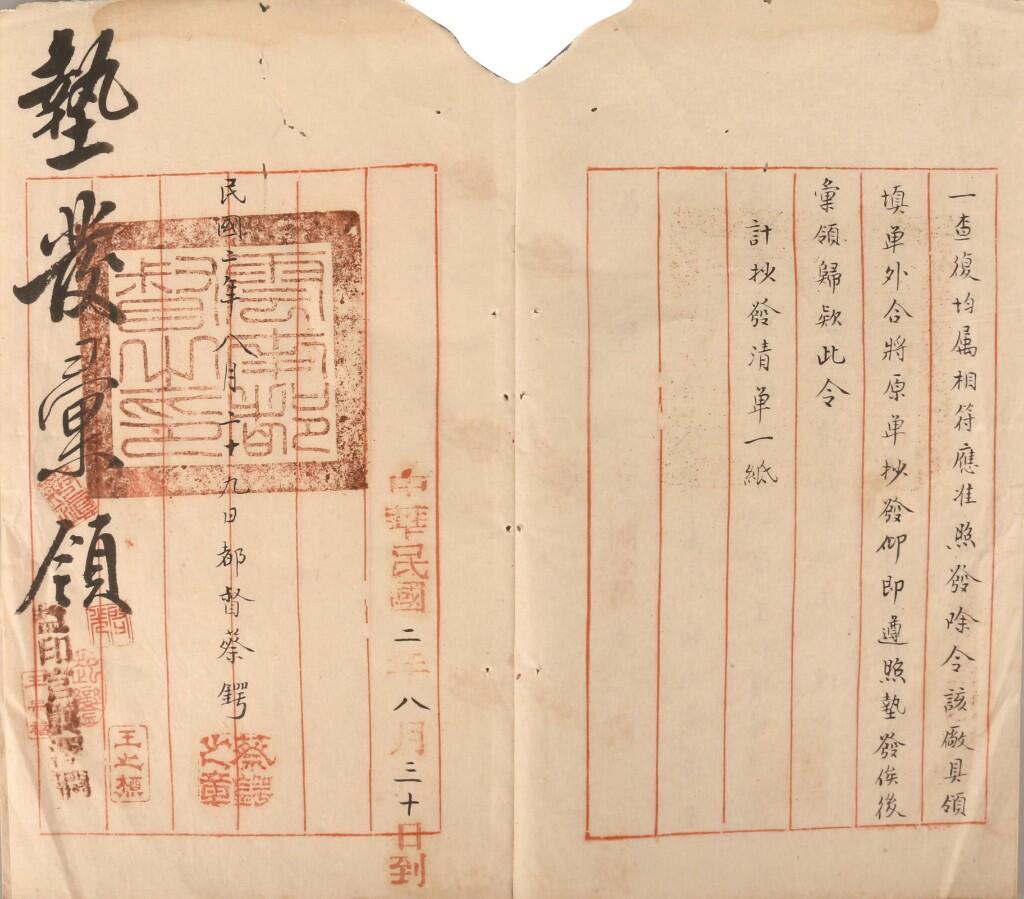 一查復均属相符應准照發除令該廠具領
填单外合將原单抄發仰即遵照墊發俟後
彙領歸欵此令
計抄發清单一紙
中華民國二年八月三十日到
民國二年八月二十九日都督蔡鍔
雲南都督之印
蔡鍔之章
王之標
墊發彙領